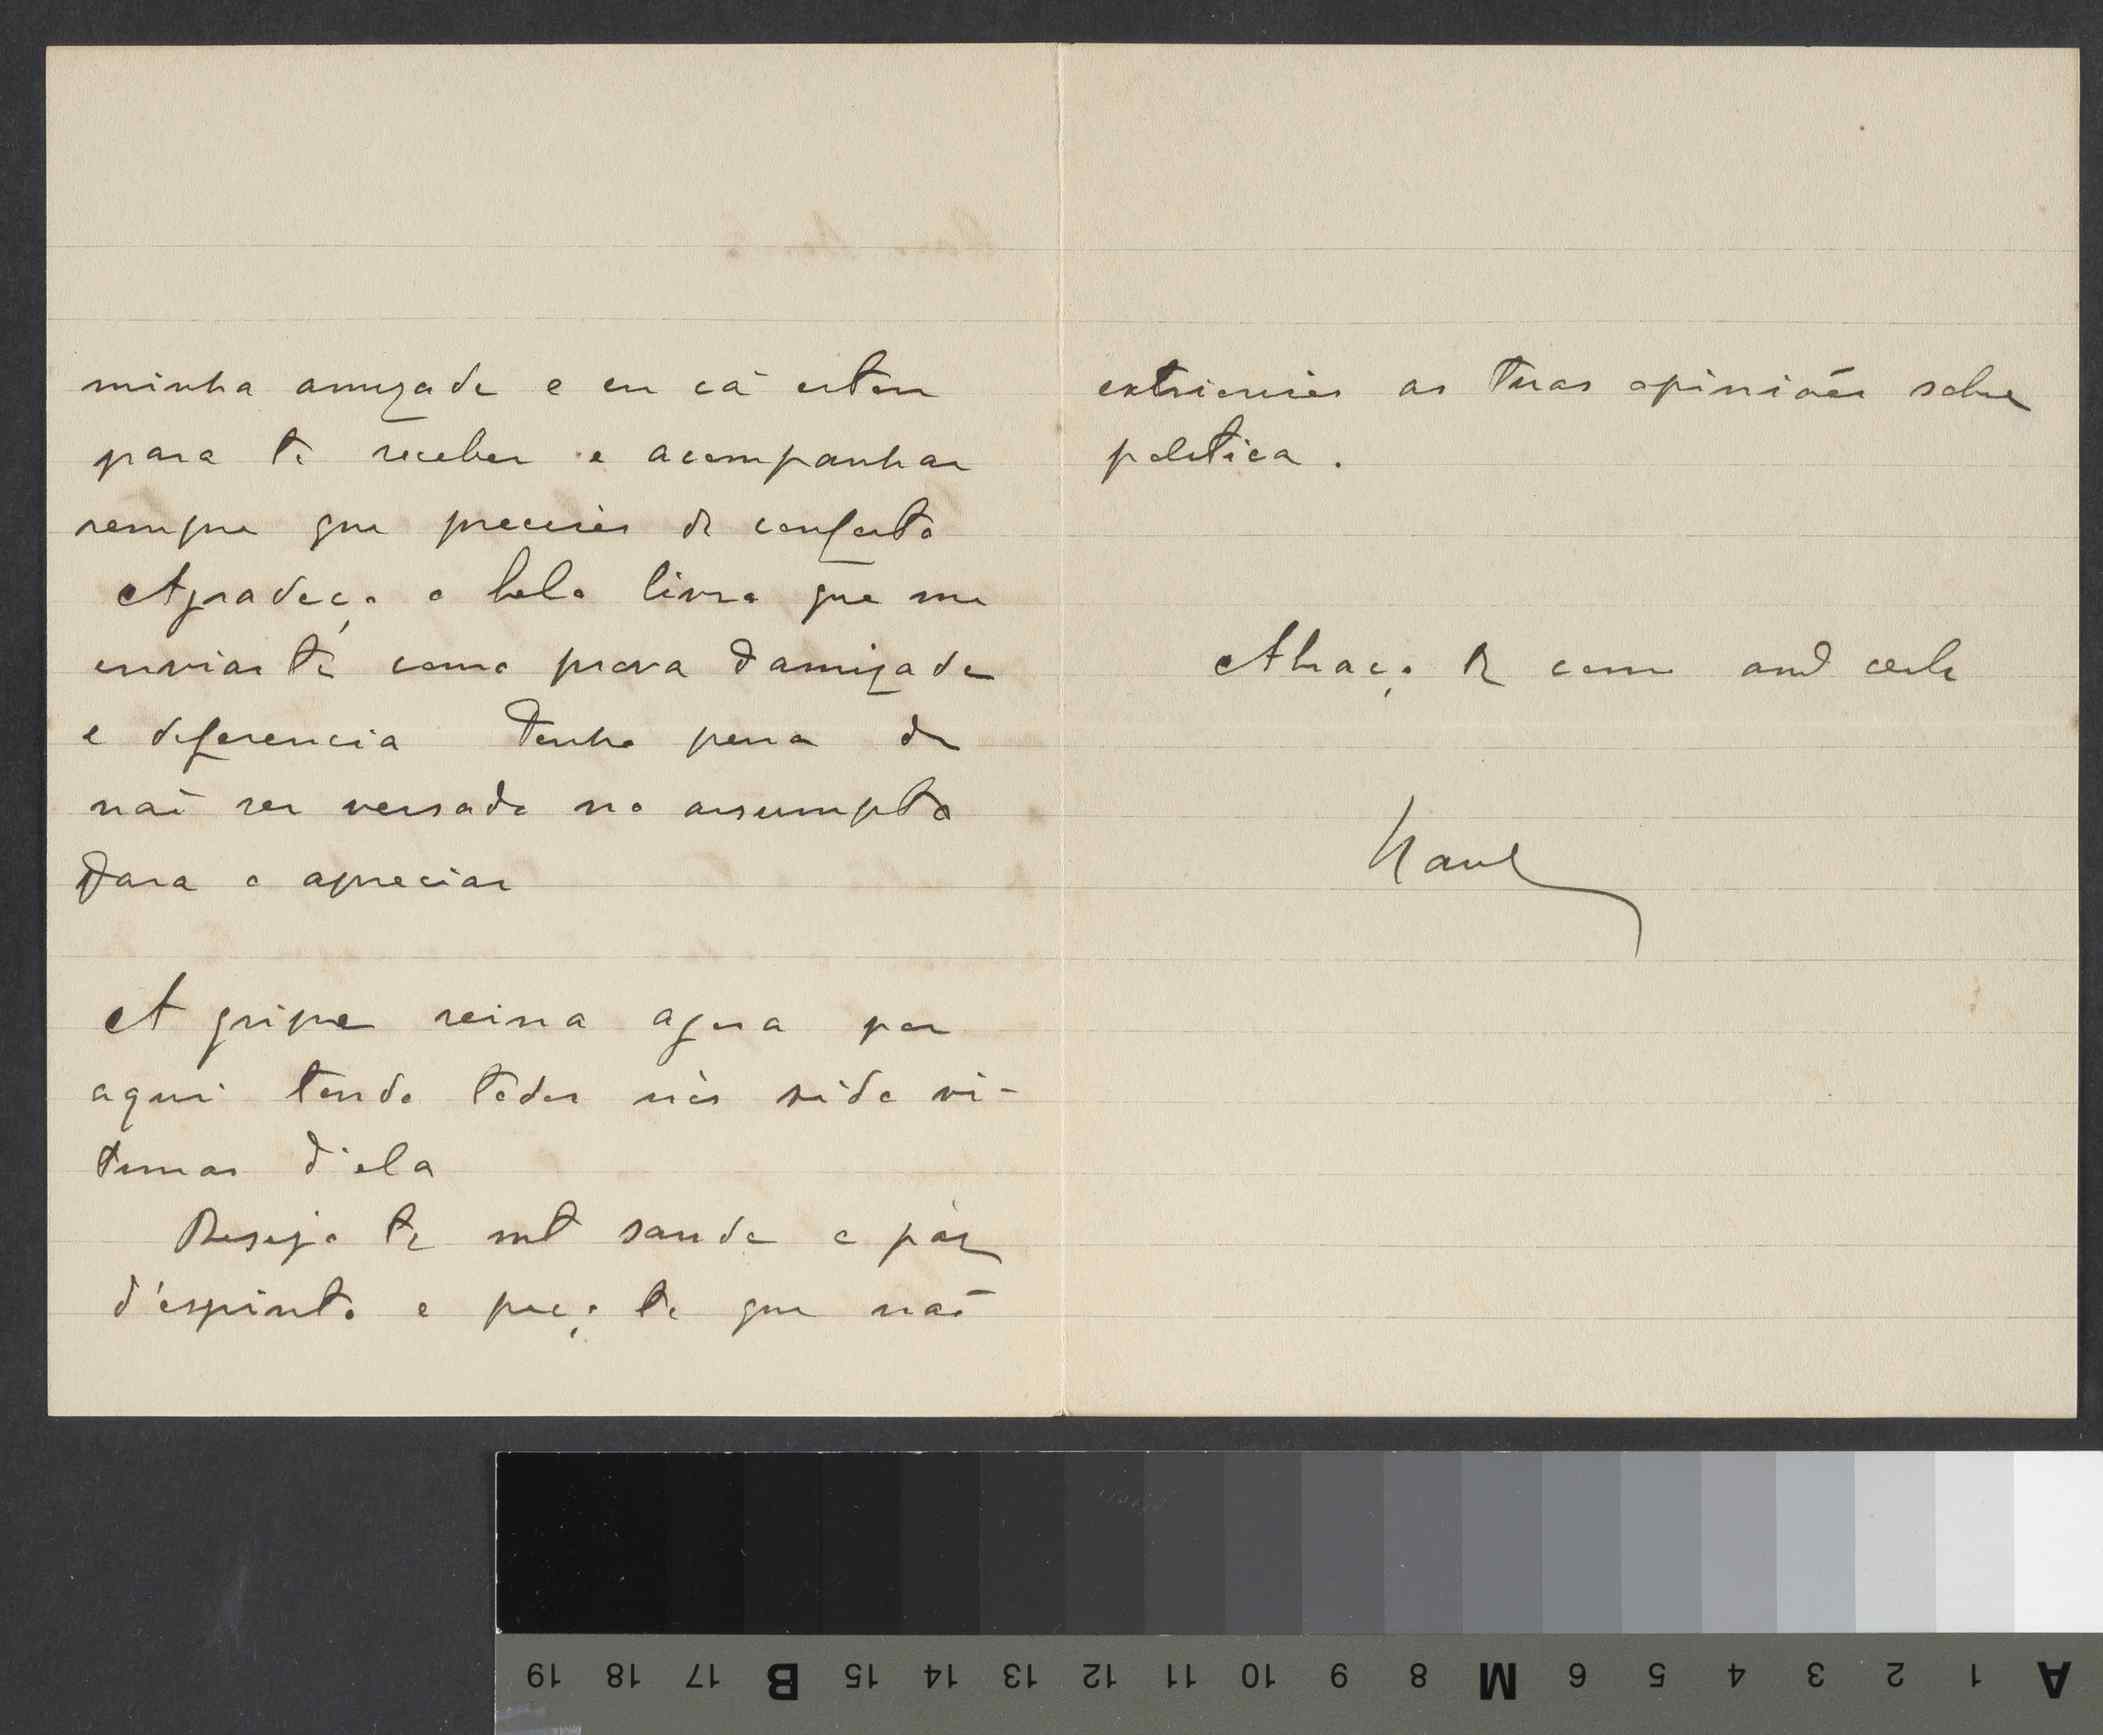 minha amizade e eu cá estou
para te receber e acompanhar
sempre que precises de conforto
Agradeço o belo livro que me
enviaste como prova d'amizade
e diferencia Tenho pena de
não ser versado no assumpto
para o apreciar
A gripe reina agora por
aqui tendo todos nós sido vi-
timas d'ela
Desejo te mt saude e páz
d'espirito e peço te que não
extriorises as tuas opiniões sobre
politica.
Abraço te como
Raul
19 18 17 B 15 14 13 12 11 10 9 8 M 6 5 4 3 2 1 A